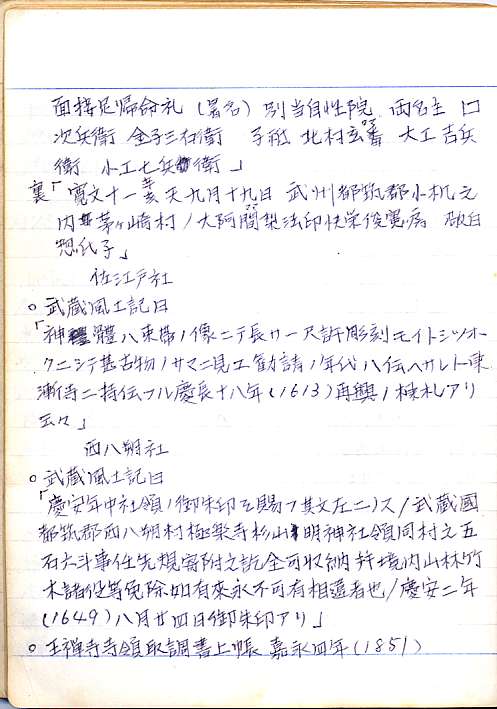 面接足歸命礼 (署名) 別当自性院 両名主 口
次兵衛 金子三右衛 子祇 北村玄蕃 大工 吉兵
衛 小工七兵衛」
裏「寛文十一辛亥天九月十九日 武州都筑郡小机之
内 茅ヶ崎村/大阿闍梨法印快栄俊寛房 敬白
惣氏子」
佐江戸社
○武蔵風土記曰
「神體ハ束帯ノ像ニテ長サ一尺許彫刻モイトシツホ
クニシテ甚古物ノサマニ見エ勧請ノ年代ハ伝ヘサレト東
漸寺ニ持伝フル慶長十八年(1613)再興ノ棟札アリ
云々」
西八朔社
○武蔵風土記曰
「慶安年中社領ノ御朱印ヲ賜フ其文左ニノス/武蔵國
都筑郡西八朔村極楽寺杉山明神社領同村之五
石六斗事任先規寄附之訖全可収納幷境内山林竹
木諸役等免除如有來永不可有相違者也/慶安二年
(1649)八月廿四日御朱印アリ」
○王禅寺寺領取調書上帳 嘉永四年(1851)